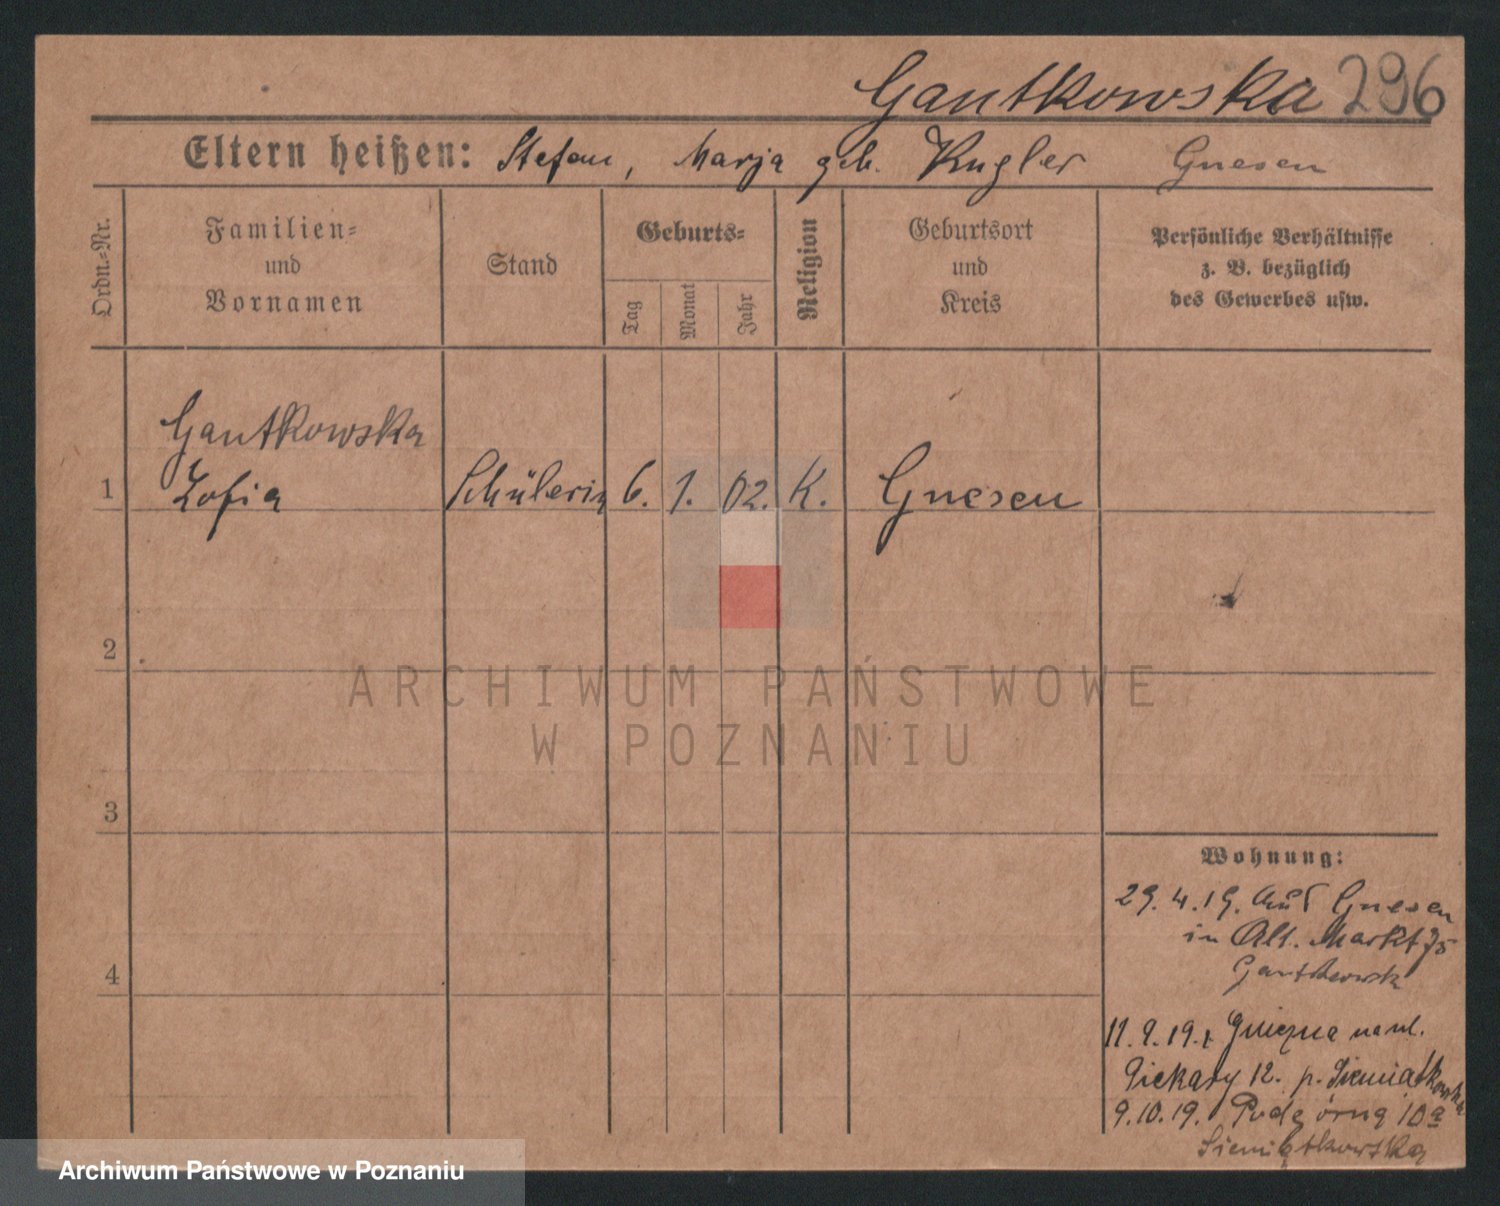 Gantkowska 296
Eltern heißen: Stefan, Marja geb. Kugler Gnesen
Ordn.-Nr.
Familien-
und
Vornamen
Stand
Geburts-
Tag
Monat
Jahr
Religion
Geburtsort
und
Kreis
Persönliche Verhältnisse
z. B. bezüglich
des Gewerbes usw.
Gantkowska
1 Zofia Schülerin 6. 1. 02. K. Gnesen
2
ARCHIWUM PAŃSTWOWE
W POZNANIU
3
Wohnung:
29.4.19. aus Gnesen
in Alt. Markt 75
Gantkowsk
4
11.9.19. z Gniezna na ul.
Piekary 12. p. Siemiątkowska
9.10.19. Podgórna 10a
Siemiątkowska
Archiwum Państwowe w Poznaniu